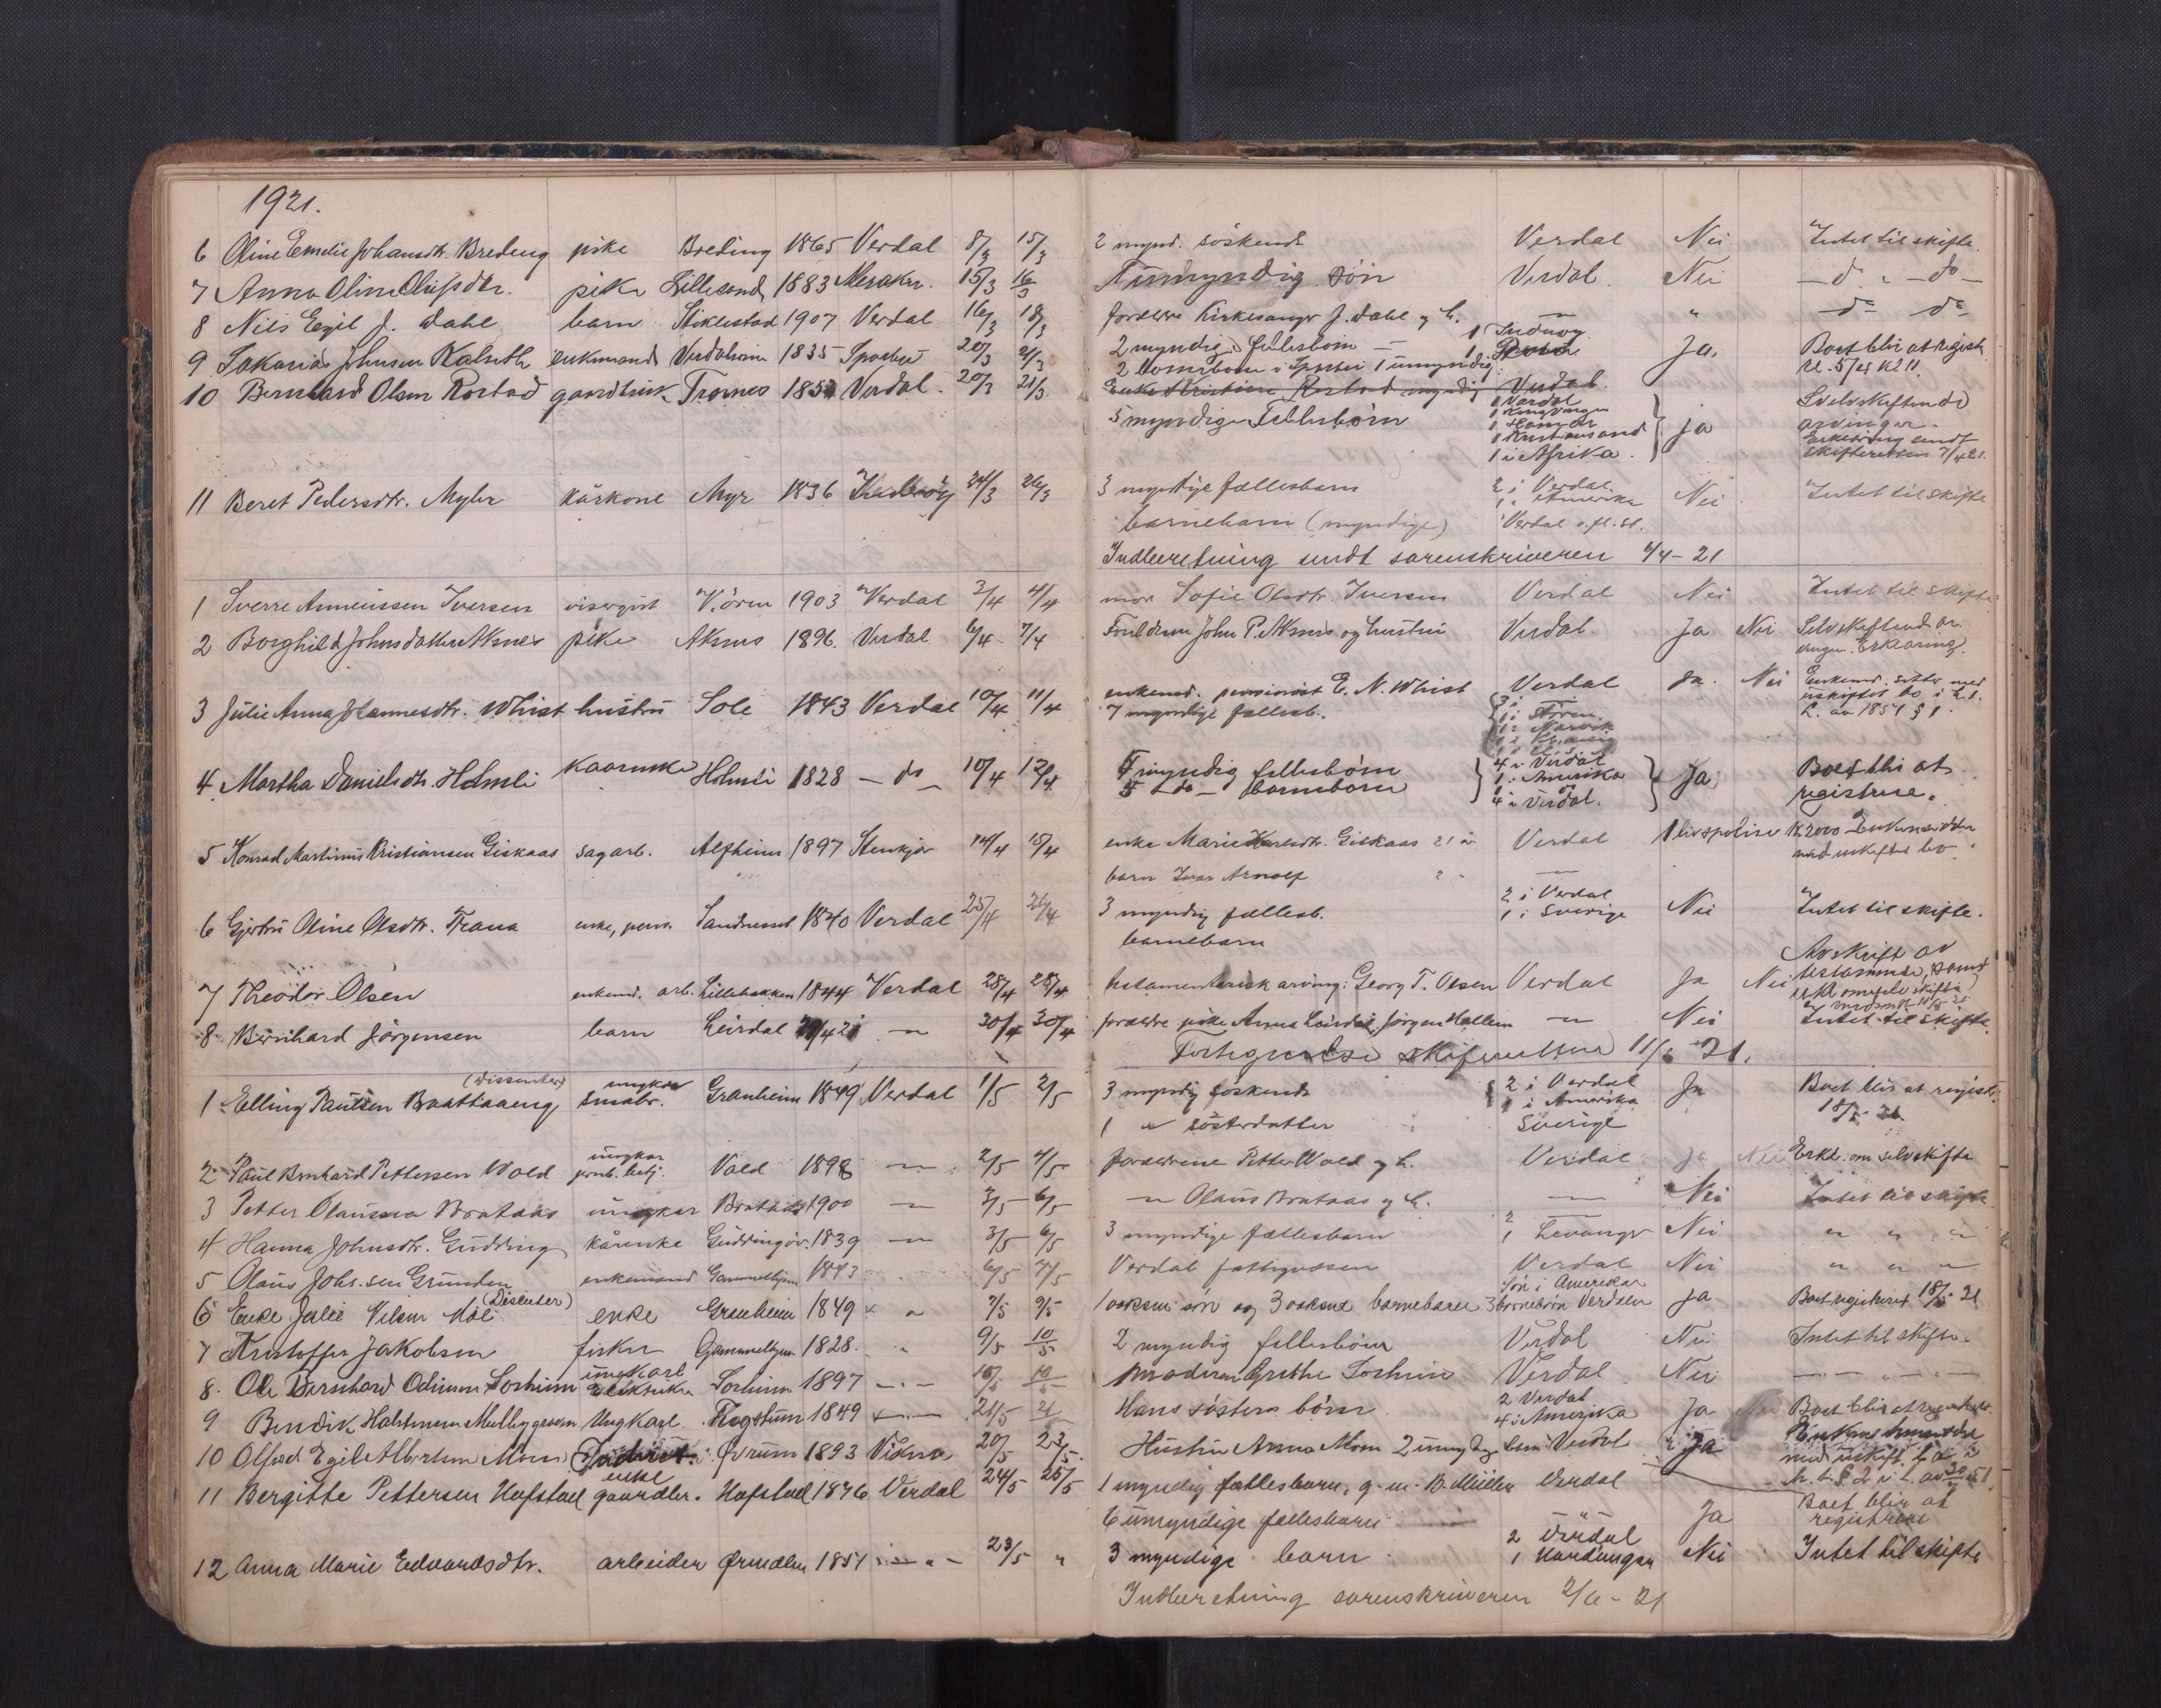 1921.
6 Oline Emelie Johansdtr. Breding pike Breding 1865 Verdal 8/3 15/3 2 mynd. söskende Verdal Nei Intet til skifte.
7 Anna Oline Olufsdtr. pike Lillesand 1883 Meraker. 15/3 16/3 1 umyndig sön Verdal. Nei — d — do —
8 Nils Egil J. Dahl barn Stiklestad 1907 Verdal 16/3 18/3 forældre Kirkesanger J. Dahl og h. — " — do do
9 Sakarias Johnsen Kaluth enkemand Verdalsøra 1835 Sparbu 20/3 21/3 2 myndige fellesborn — 1 Inderøy Ja. Boet blir at registr.
2 i Sparbu 1 umyndig. 1 kl 11.
10 Bernhard Olsen Rostad gaardbruk. Trones 1851 Verdal. 20/3 21/3 Enke Kristine Rostad myndig Verdal.
5 myndige Fellesbörn 1 Verdal 1 Kongsvinger 1 Hamar 1 Kristiansand 1 i Afrika. ja Selvskiftende arvinger. Erklæring sendt skifteretten 7/4 21.
11 Beret Pedersdtr. Myhr kårkone Myr 1836 24/3 26/3 3 myndige fællesbarn 2 i Verdal 1 i Amerika Nei Intet til skifte
barnebarn (myndige) Verdal o. fl. st.
Indberetning sendt sorenskriveren 2/4 - 21
1 Sverre Anneussen Iversen visergut V. ören 1903 Verdal 3/4 4/4 mor Sofie Olsdtr. Iversen Verdal Nei Intet til skifte
2 Borghild Johnsdatter Aksnes pike Aksnes 1896. Verdal 6/4 7/4 Foreldrene John P. Aksnes og hustru Verdal Ja Nei Selvskiftende ar
vinger. Erklæring.
3 Julie Anna Johannesdtr. Whist hustru Sole 1843 Verdal 10/4 11/4 enkemd. pensionist E. N. Whist Verdal Ja. Nei Enkemd. sitter med
7 myndige fællesb. 3 i — 1 i Stören 1 i Narvik uskiftet bo i h.t.
L. av 1851 § 1.
4 Martha Danielsdtr. Holmli Kaarenke Holmli 1828 — do — 10/4 12/4 myndig fellesbörn 4 i Verdal 1 i Amerika Ja. Boet blir at
5 — do — barneborn 4 i Verdal. registrere.
5 Konrad Martinus Kristiansen Giskaas sagarb. Alfheim 1897 Stenkjær 14/4 15/4 enke Marie Karlsdtr. Giskaas 21 år Verdal 1 livspolise K. 2000 Enken sidder
barn Ivar Arnolf 2 " — med uskiftet bo.
6 Gjertru Oline Olsdtr. Trana enke, pens. 1840 Verdal 25/4 26/4 3 myndig fællesb. 2 i Verdal 1 i Sverige Nei Intet til skifte.
barnebarn
7 Theodor Olsen enkemd. arb. Lillebakken 1844 Verdal 28/4 28/4 testamentarisk arving: Georg T. Olsen Verdal Ja Nei Avskrift av testamente, samt erkl. om selvskifte
8 Bernhard Jörgensen barn Leirdal 21 — " — 30/4 30/4 forældre pike Anna Leirdal, Jörgen Hallem — " — Nei Intet til skifte.
Fortegnelse skifteretten 11/5 21.
1 Elling Paulsen Baattaaeng (Dissenter) ungkar smabr. Granheim 1849 Verdal 1/5 2/5 3 myndig söskende 2 i Verdal 1 i Amerika Ja Boet blir at registr.
1 " sösterdatter Sverige 18/5 - 21
2 Paul Bernhard Pettersen Wold ungkar jernb. betj. Vold 1898 — " — 2/5 4/5 forældrene Petter Wold og h. Verdal Ja Nei Erkl. om selvskifte
3 Petter Olaussen Brataas ungkar Brataas 1900 — " — 3/5 6/5 — " — Olaus Brataas og h. — " — Nei Intet til skifte
4 Hanna Johnsdtr. Gudding kårenke Guddingöv. 1839 — " — 3/5 6/5 3 myndige fællesbarn 2 — 1 Levanger Nei " " "
5 Olaus Johs.sen Grunden enkemand Gammelhjem 1843 6/5 7/5 Verdal fattigvæsen Verdal Nei " " "
6 Enke Julie Nilsen Möl (Disenter) enke Granheim 1849 " 7/5 9/5 1 voksen sön og 3 voksne barnebarn Sön i Amerika 3 barnebörn Verdalen ja Boet registrert 18/5 - 21
7 Kristoffer Jakobsen fisker Gammelhjem 1828. " 9/5 10/5 2 myndig fellesbörn Verdal Nei Intet til skifte.
8. Ole Bernhard Odinsen Sorheim ungkarl Elektriker Sorheim 1897 — " — 10/5 10/5 Moderen Grethe Sorheim Verdal. Nei — " — " —
9 Bendik Halstensen Melbygraven Ungkarl Flegstum 1849 — " — 21/5 21 Hans sösters börn 2 Verdal 4 i Amerika Ja Nei Boet blir at registrere
10 Olfred Egil Albertsen Moen Øvrum 1893 Vikna 20/5 23/5. Hustru Anna Moen 2 umyndige barn Verdal Ja med uskift. bo
11 Bergitte Pettersen Hofstad enke gaardbr. Hofstad 1846 Verdal 24/5 25/5 1 myndig fællesbarn, g. m. B. Müller Verdal
6 umyndige fællesbarn — " Ja Boet blir at registrere
12 Anna Marie Edvardsdtr. arbeider Ørmelen 1851 — " — 23/5 " 3 myndige barn 2 Verdal 1 Hardanger Nei Intet til skifte
Indberetning sorenskriveren 2/6 - 21